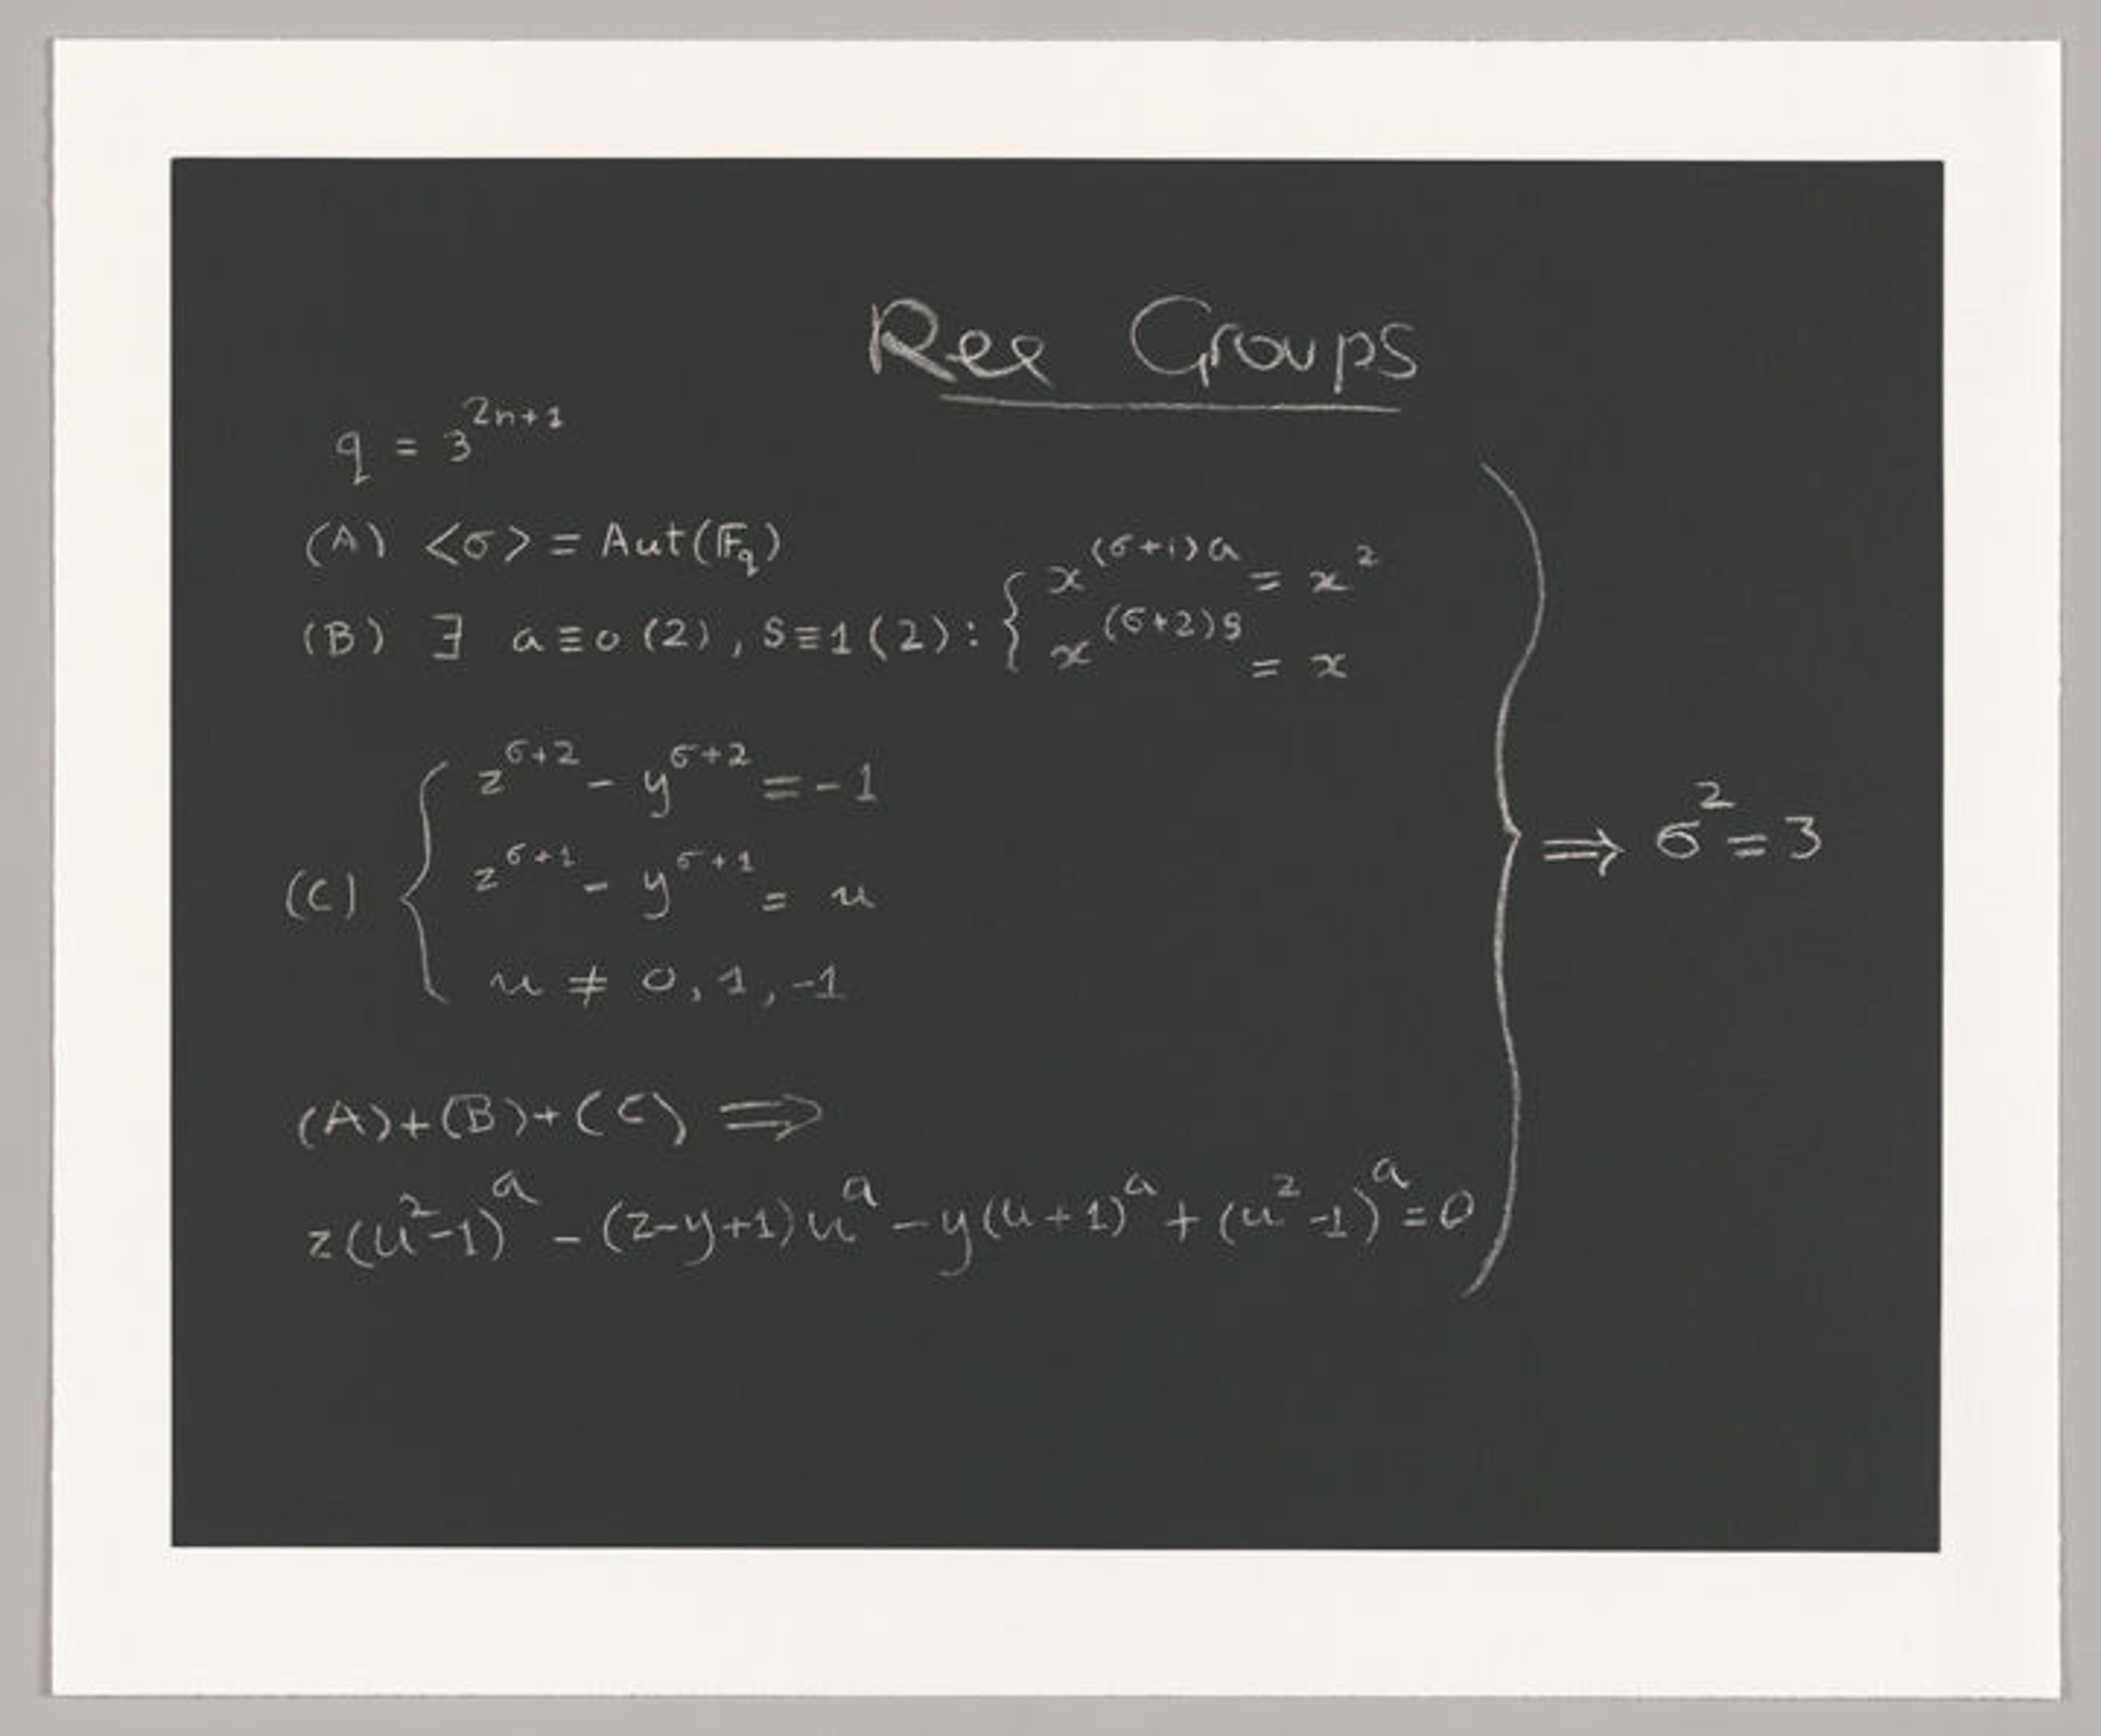 Ree Groups
q = 3^{2n+1}
(A) <σ> = Aut(𝔽_q)
(B) ∃ a≡0 (2), s≡1(2): { x^{(σ+1)a} = x^2
x^{(σ+2)s} = x
(C) { z^{σ+2} - y^{σ+2} = -1
z^{σ+1} - y^{σ+1} = u
u ≠ 0, 1, -1
} ⟹ σ^2 = 3
(A)+(B)+(C) ⟹
z(u^2-1)^a - (z-y+1)u^a - y(u+1)^a + (u^2-1)^a = 0